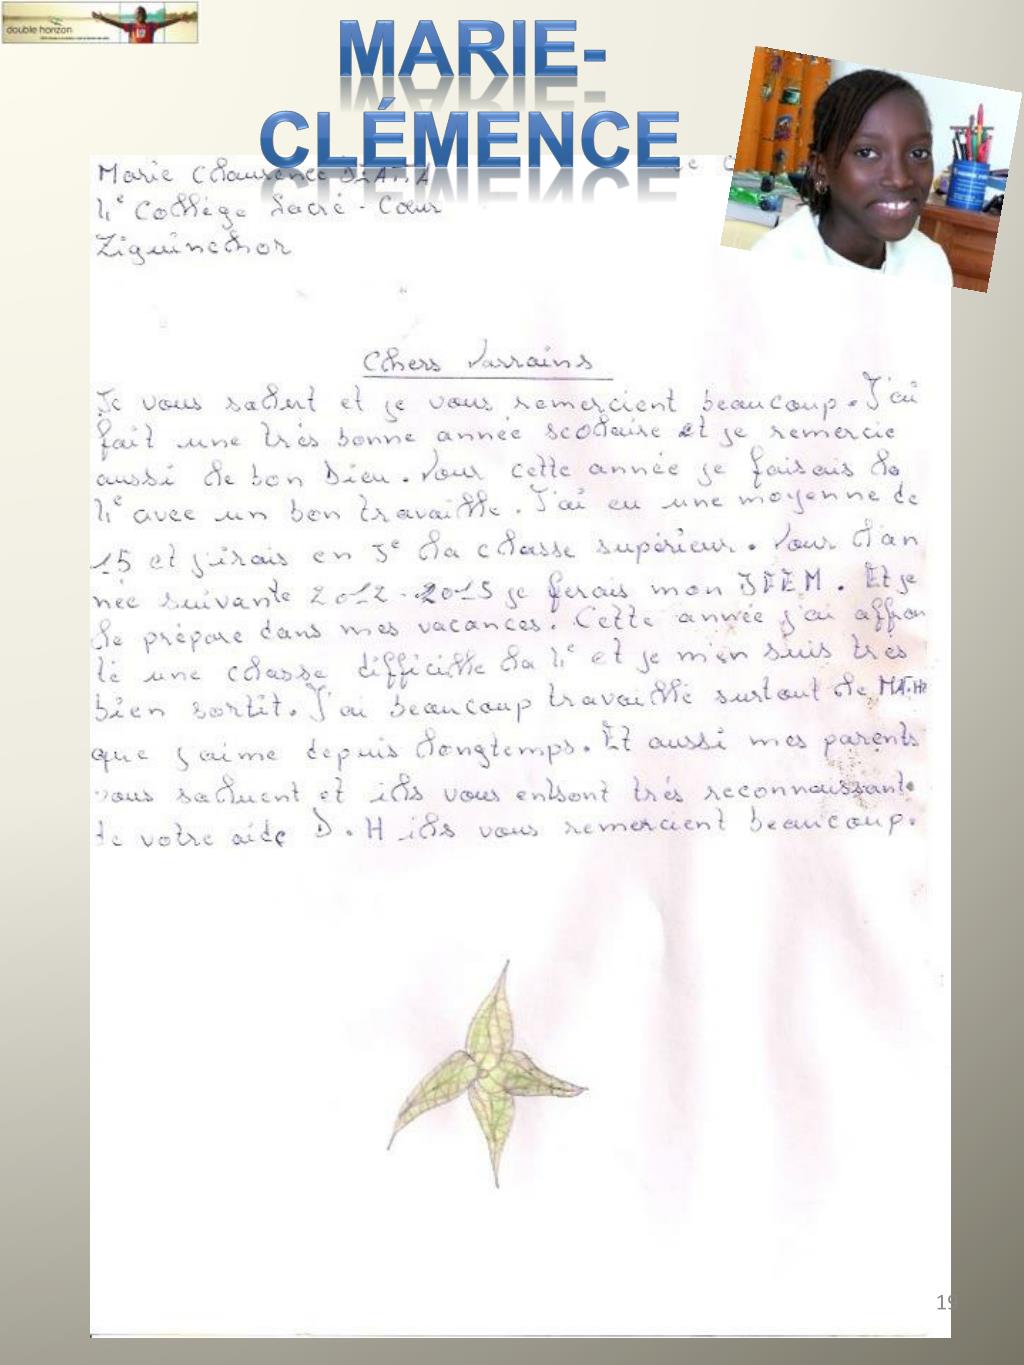 double horizon
MARIE-
CLÉMENCE
Marie Clausence DIATTA
4e Collége Sacré-Cœur
Ziguinchor
Chers Parrains
Je vous saluet et je vous remercient beaucoup. J'ai
fait une très bonne année scolaire et je remercie
aussi le bon Dieu. Pour cette année je faisais la
4e avec un bon travaille. J'ai eu une moyenne de
15 et j'irais en 3e la classe supérieur. Pour l'an
née suivante 2012-2013 je ferais mon BFEM. Et je
le prépare dans mes vacances. Cette année j'ai affron
té une classe difficille la 4e et je m'en suis très
bien sortit. J'ai beaucoup travaillé surtout le MATHS
que j'aime depuis longtemps. Et aussi mes parents
vous saluent et ils vous entsont très reconnaissant
de votre aide D.H ils vous remercient beaucoup.
19